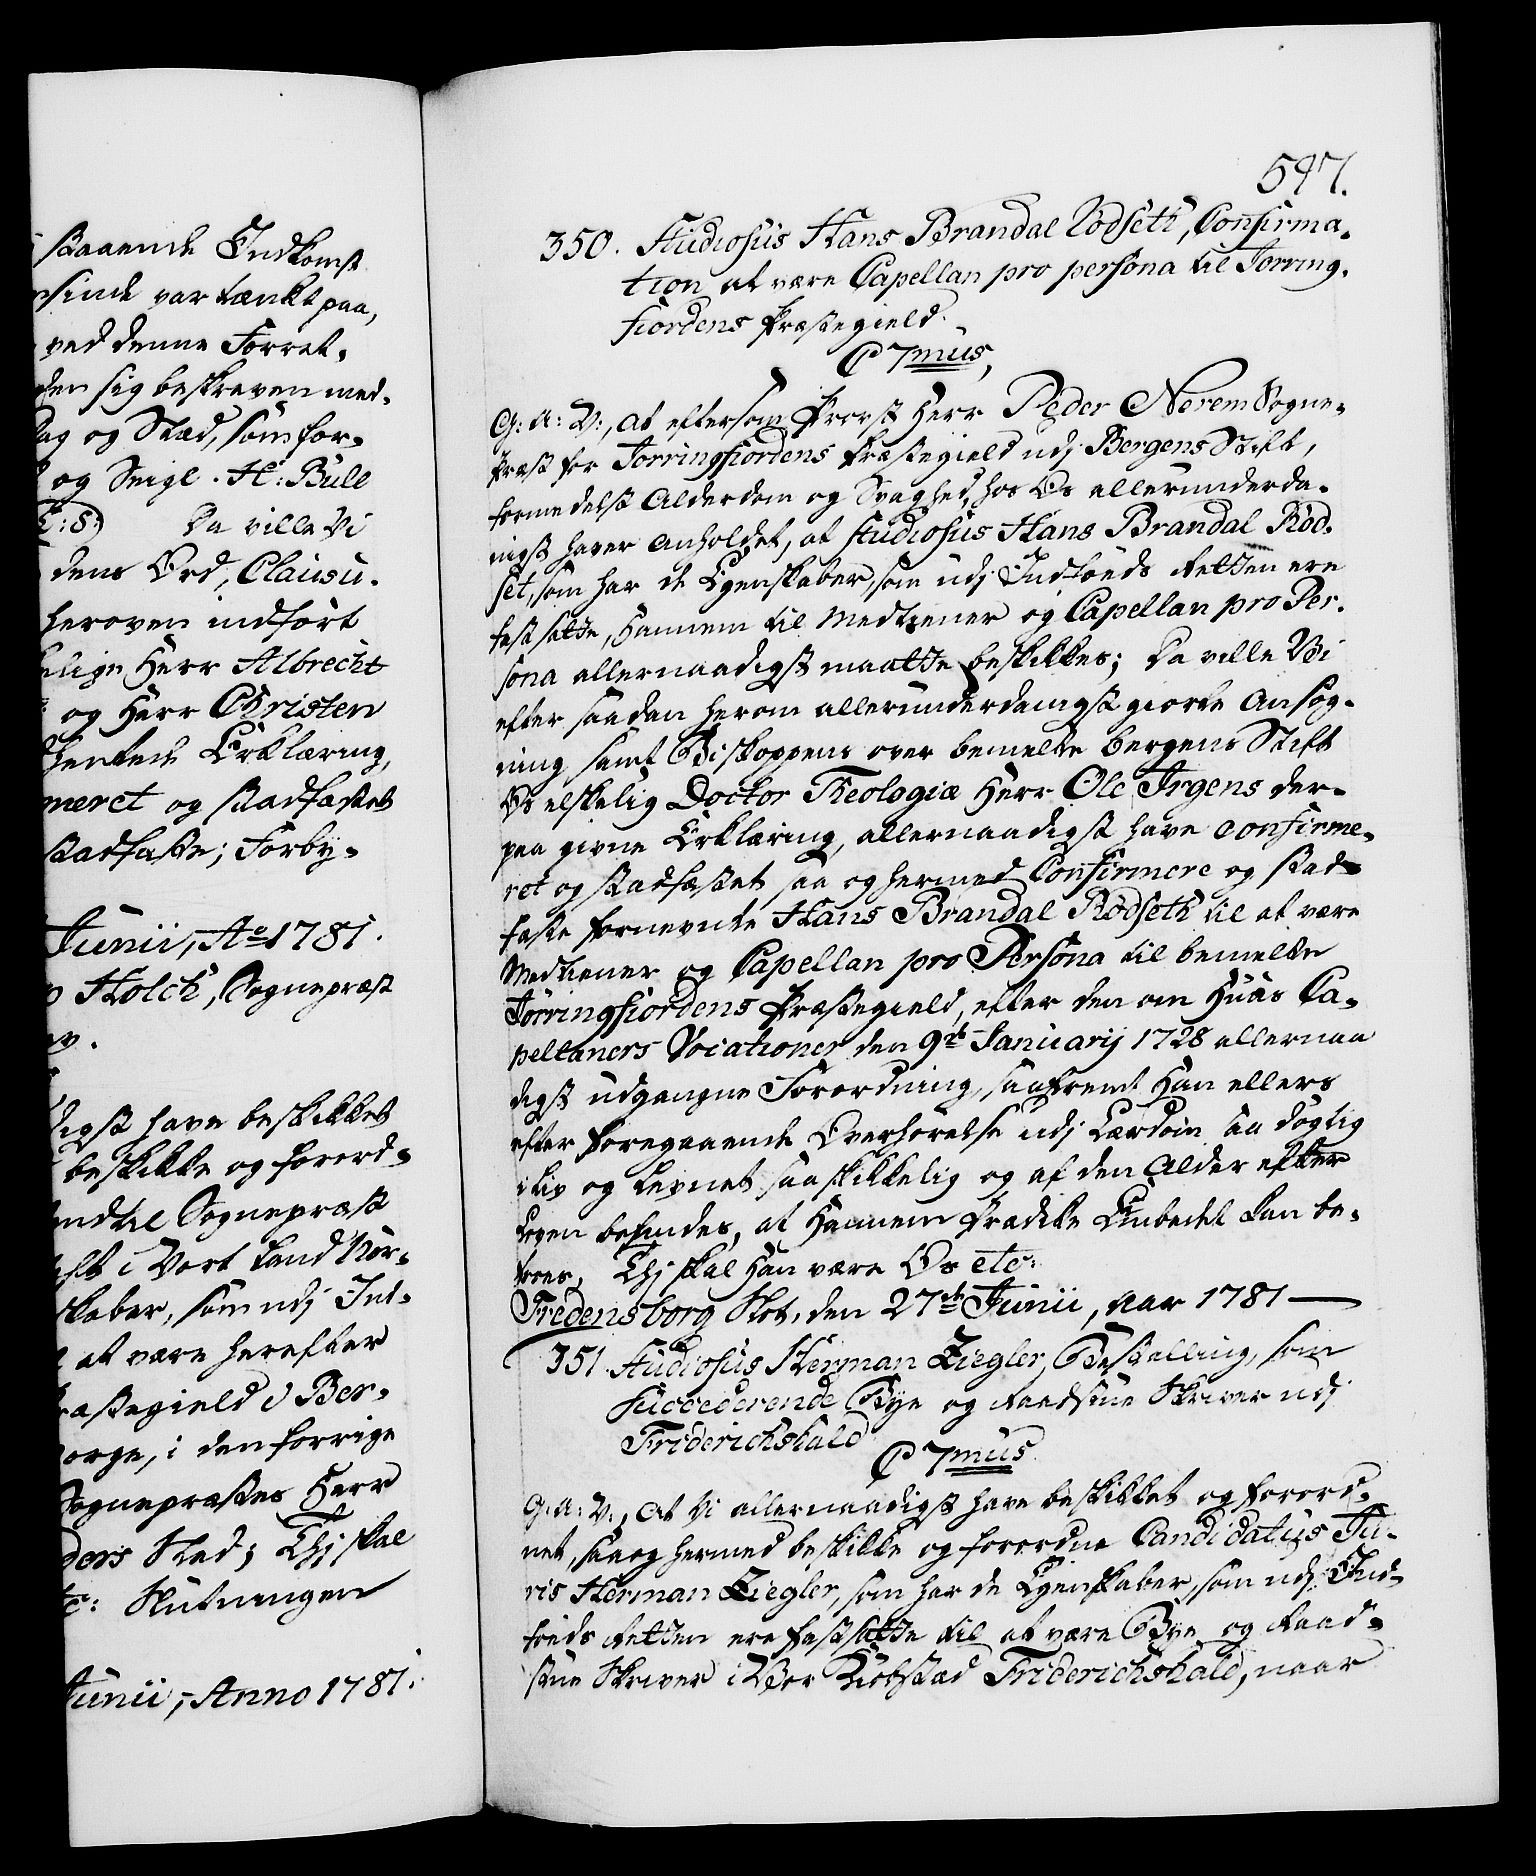 staaende Indkomst
sinde var tænkt paa,
ved denne Forret-
den sig beskreven med-
og Stæd, som for-
og Seigl. H: Bull
(L:S:) Da ville Vi
dens Ord, Clausu-
heroven indført
elige Herr Albrecht
og Herr Christen
hentede Erklæring,
meret og stadfæstet
stadfæste; Forby-
Junii, Ao 1781.
Holck, Sognepræst
digst have beskikket
beskikke og forord-
til Sognepræst
i Vort Land Nor-
skaber, som udj Ind-
at være herefter
ræstegield i Ber-
orge, i den forrige
Sognepræstes Herr
ders Sted; Thj skal
etc: Slutningen
Junii, Anno 1781.
547.
350. Studiosus Hans Brandal Rødseth, Confirma-
tion at være Capellan pro persona til Jorring-
fiordens Præstegield.
C 7mus,
G: A: V:, at eftersom Provst Herr Peder Nerem Sogne-
præst for Jorringfiordens Præstegield udj Bergens Stift,
formedelst Alderdom og Svaghed, hos Os allerunderda-
nigst haver anholdet, at Studiosus Hans Brandal Rød-
set, som har de Egenskaber, som udj Indføeds Retten ere
fastsatte, Hannem til Medtiener og Capellan pro Per-
sona allernaadigst maatte beskikkes; Da ville Vi
efter saadan herom allerunderdanigst giorte Ansøg-
ning samt Biskoppens over bemelte Bergens Stift
Os elskelig Doctor Theologiæ Herr Ole Irgens der-
paa givne Erklæring, allernaadigst have confirme-
ret og stadfæstet saa og hermed Confirmere og stad-
fæste fornevnte Hans Brandal Rødseth til at være
Medtiener og Capellan pro Persona til bemelte
Jørringfiordens Præstegield, efter den om Huus Ca-
pellaners Vocationer den 9de Januarij 1728 allernaa
digst udgangne Forordning, saafremt Han ellers
efter foregaaende Overhørelse udj Lærdom saa døgtig
i Liv og Levnet saa skikkelig og af den Alder efter
Loven befindes, at Hannem Prædike Embedet kan be-
troes, Thj skal Han være Os etc:
Fredensborg Slot, den 27de Junii, Aar 1781 —
351. Studiosus Herman Ziegler, Bestalling, som
Succederende Bye og Raadstue Skriver udj
Friderichshald
C 7mus
G: A: V:, at Vi allernaadigst have beskikket og forord-
net, saa og hermed beskikke og forordne Candidatus Ju-
ris Herman Ziegler, som har de Egenskaber, som udj Ind-
føeds Retten ere fastsatte til at være Bye og Raad-
stue Skriver i Vor Kiøbstæd Friderichshald, naar